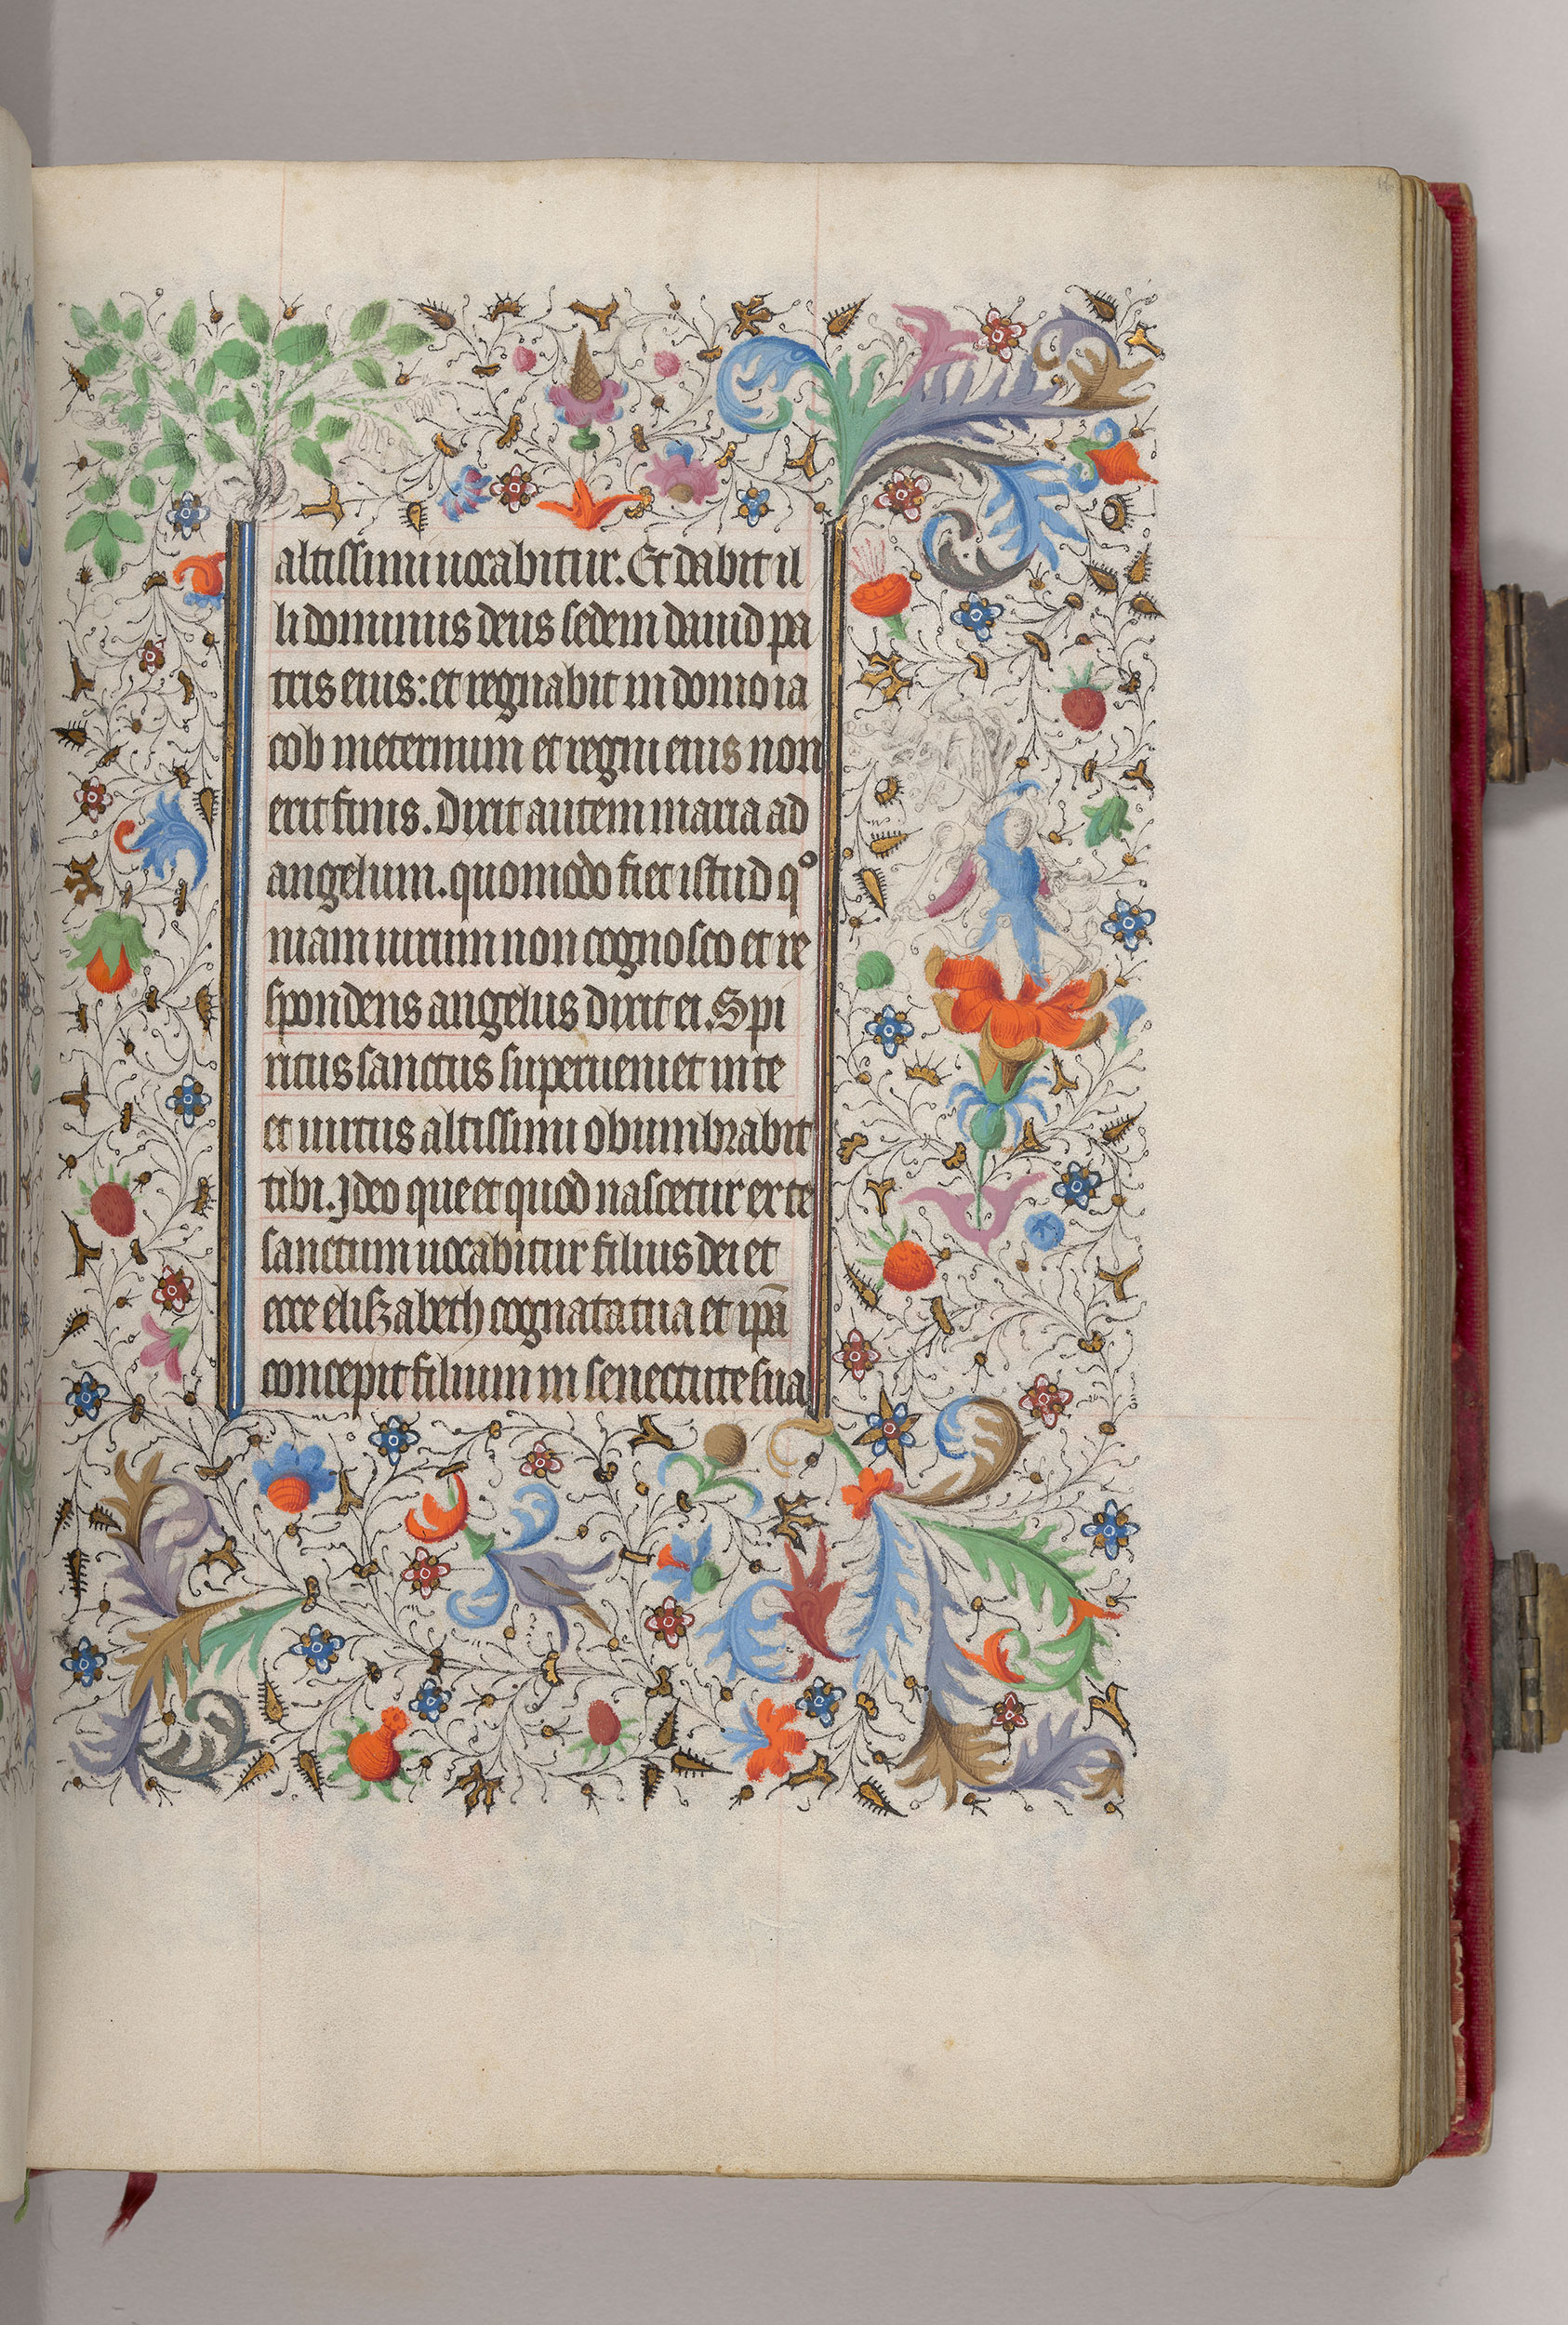 altissimi uocabitur. Et dabit il
li dominus deus sedem dauid pa
tris eius: et regnabit in domo ia
cob in eternum et regni eius non
erit finis. Dixit autem maria ad
angelum. quomodo fiet istud qº
niam uirum non cognosco et re
spondens angelus dixit ei. Spi
ritus sanctus superueniet in te
et uirtus altissimi obumbrabit
tibi. Ideo que et quod nascetur ex te
sanctum uocabitur filius dei et
ecce elizabeth cognata tua et ip̄a
concepit filium in senectute sua